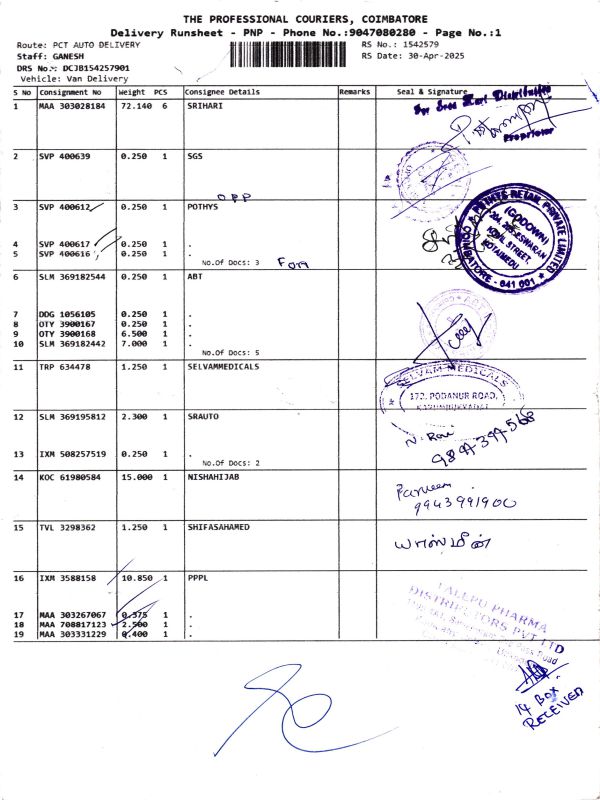 THE PROFESSIONAL COURIERS, COIMBATORE
Delivery Runsheet - PNP - Phone No.:9047080280 - Page No.:1
Route: PCT AUTO DELIVERY RS No.: 1542579
Staff: GANESH RS Date: 30-Apr-2025
DRS No.: DCJB154257901
Vehicle: Van Delivery
S No Consignment No Weight PCS Consignee Details Remarks Seal & Signature
1 MAA 303028184 72.140 6 SRIHARI
For Sree Hari Distributors
Proprietor
2 SVP 400639 0.250 1 SGS
OPP
3 SVP 400612 0.250 1 POTHYS
POTHYS RETAIL PRIVATE LIMITED
(GODOWN)
KOVIL STREET,
KOTAIMEDU
COIMBATORE - 641 001
4 SVP 400617 0.250 1 .
5 SVP 400616 0.250 1 .
No.Of Docs: 3
6 SLM 369182544 0.250 1 ABT
7 DDG 1056105 0.250 1 .
8 OTY 3900167 0.250 1 .
9 OTY 3900168 6.500 1 .
10 SLM 369182442 7.000 1 .
No.Of Docs: 5
11 TRP 634478 1.250 1 SELVAMMEDICALS
SELVAM MEDICALS
172, PODANUR ROAD,
12 SLM 369195812 2.300 1 SRAUTO
N. Ravi
9894394568
13 IXM 508257519 0.250 1 .
No.Of Docs: 2
14 KOC 61980584 15.000 1 NISHAHIJAB
Parveen
9943991900
15 TVL 3298362 1.250 1 SHIFASAHAMED
யாஸ்மீன்
16 IXM 3588158 10.850 1 PPPL
PHARMA
DISTRIBUTORS PVT LTD
17 MAA 303267067 0.375 1 .
18 MAA 708817123 2.500 1 .
19 MAA 303331229 0.400 1 .
14 BOX
RECEIVED